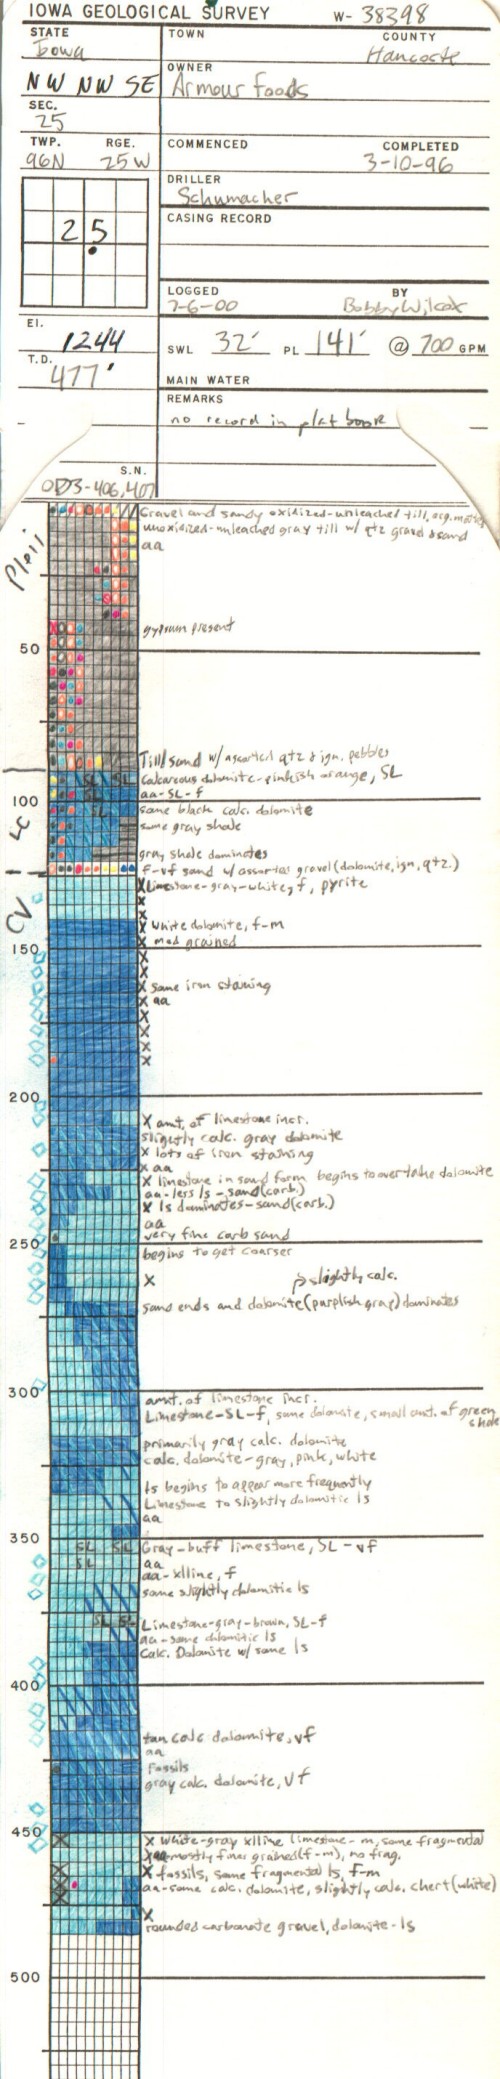 IOWA GEOLOGICAL SURVEY W- 38398
STATE TOWN COUNTY
Iowa Hancock
OWNER
NW NW SE Armour Foods
SEC.
25
TWP. RGE. COMMENCED COMPLETED
96N 25W 3-10-96
DRILLER
Schumacher
CASING RECORD
25
LOGGED BY
7-6-00 Bobby Wilcox
El.
1244
SWL 32' PL 141' @ 700 GPM
T.D.
477'
MAIN WATER
REMARKS
no record in plat book
S.N.
406,407
Gravel and sandy oxidized-unleached till, org. matter
unoxidized-unleached gray till w/ qtz gravel & sand
aa
Pleii
gypsum present
50
Till/sand w/ assorted qtz & ign. pebbles
SL SL Calcareous dolomite-pinkish orange, SL
SL aa-SL-f
100
SL some black calc. dolomite
Lc
some gray shale
gray shale dominates
f-vf sand w/ assorted gravel (dolomite, ign, qtz.)
X Limestone-gray-white, f, pyrite
X
X
CV
X white dolomite, f-m
X med grained
150
X
X
X some iron staining
X aa
X
X
X
X
200
X amt. of limestone incr.
slightly calc. gray dolomite
X lots of iron staining
X aa
X limestone in sand form begins to overtake dolomite
aa-less ls - sand (carb.)
X ls dominates-sand (carb.)
aa
very fine carb sand
250
begins to get coarser
X slightly calc.
sand ends and dolomite (purplish gray) dominates
300
amt. of limestone incr.
Limestone-SL-f, some dolomite, small amt. of green shale
primarily gray calc. dolomite
calc. dolomite-gray, pink, white
ls begins to appear more frequently
Limestone to slightly dolomitic ls
aa
350
SL SL Gray-buff limestone, SL-vf
SL aa
aa-xlline, f
some slightly dolomitic ls
SL SL Limestone-gray-brown, SL-f
aa-some dolomitic ls
Calc. Dolomite w/ some ls
400
tan calc dolomite, vf
aa
Fossils
gray calc. dolomite, vf
450
X White-gray xlline limestone-m, some fragmental
X aa mostly finer grained (f-m), no frag.
X fossils, some fragmental ls, f-m
aa-some calc. dolomite, slightly calc. chert (white)
X
rounded carbonate gravel, dolomite-ls
500